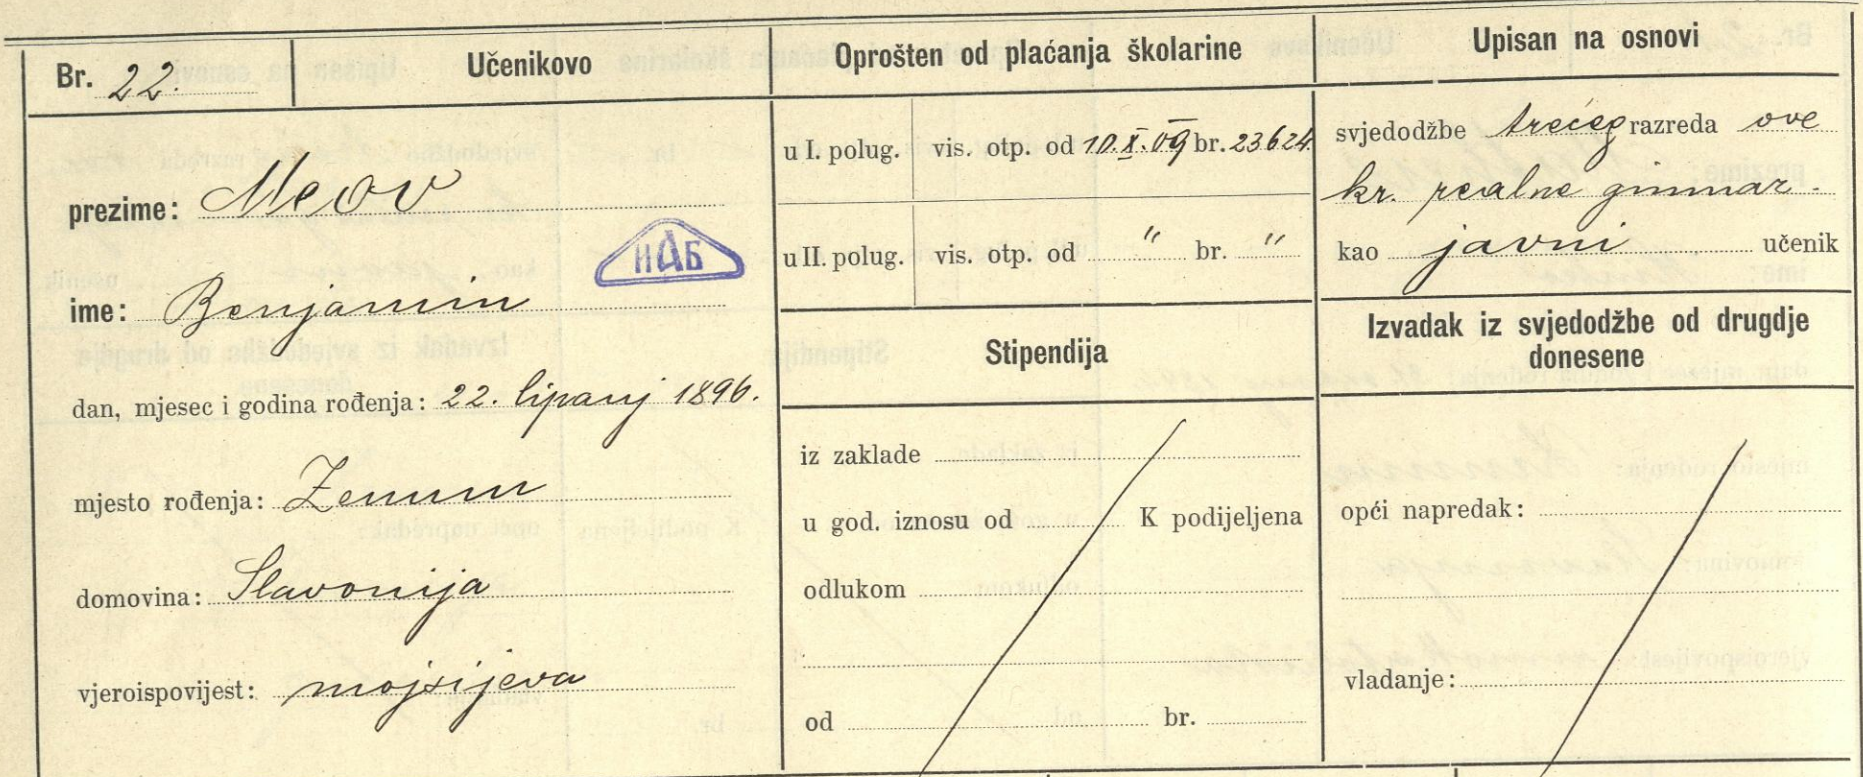 Br. 22.
Učenikovo
prezime: Meov
ime: Benjamin
ИАБ
dan, mjesec i godina rođenja: 22. lipanj 1896.
mjesto rođenja: Zemun
domovina: Slavonija
vjeroispovijest: mojsijeva
Oprošten od plaćanja školarine
u I. polug. vis. otp. od 10.X.09 br. 23624
u II. polug. vis. otp. od " br. "
Stipendija
iz zaklade
u god. iznosu od K podijeljena
odlukom
od br.
Upisan na osnovi
svjedodžbe trećeg razreda ove
kr. realne gimnaz.
kao javni učenik
Izvadak iz svjedodžbe od drugdje
donesene
opći napredak:
vladanje: